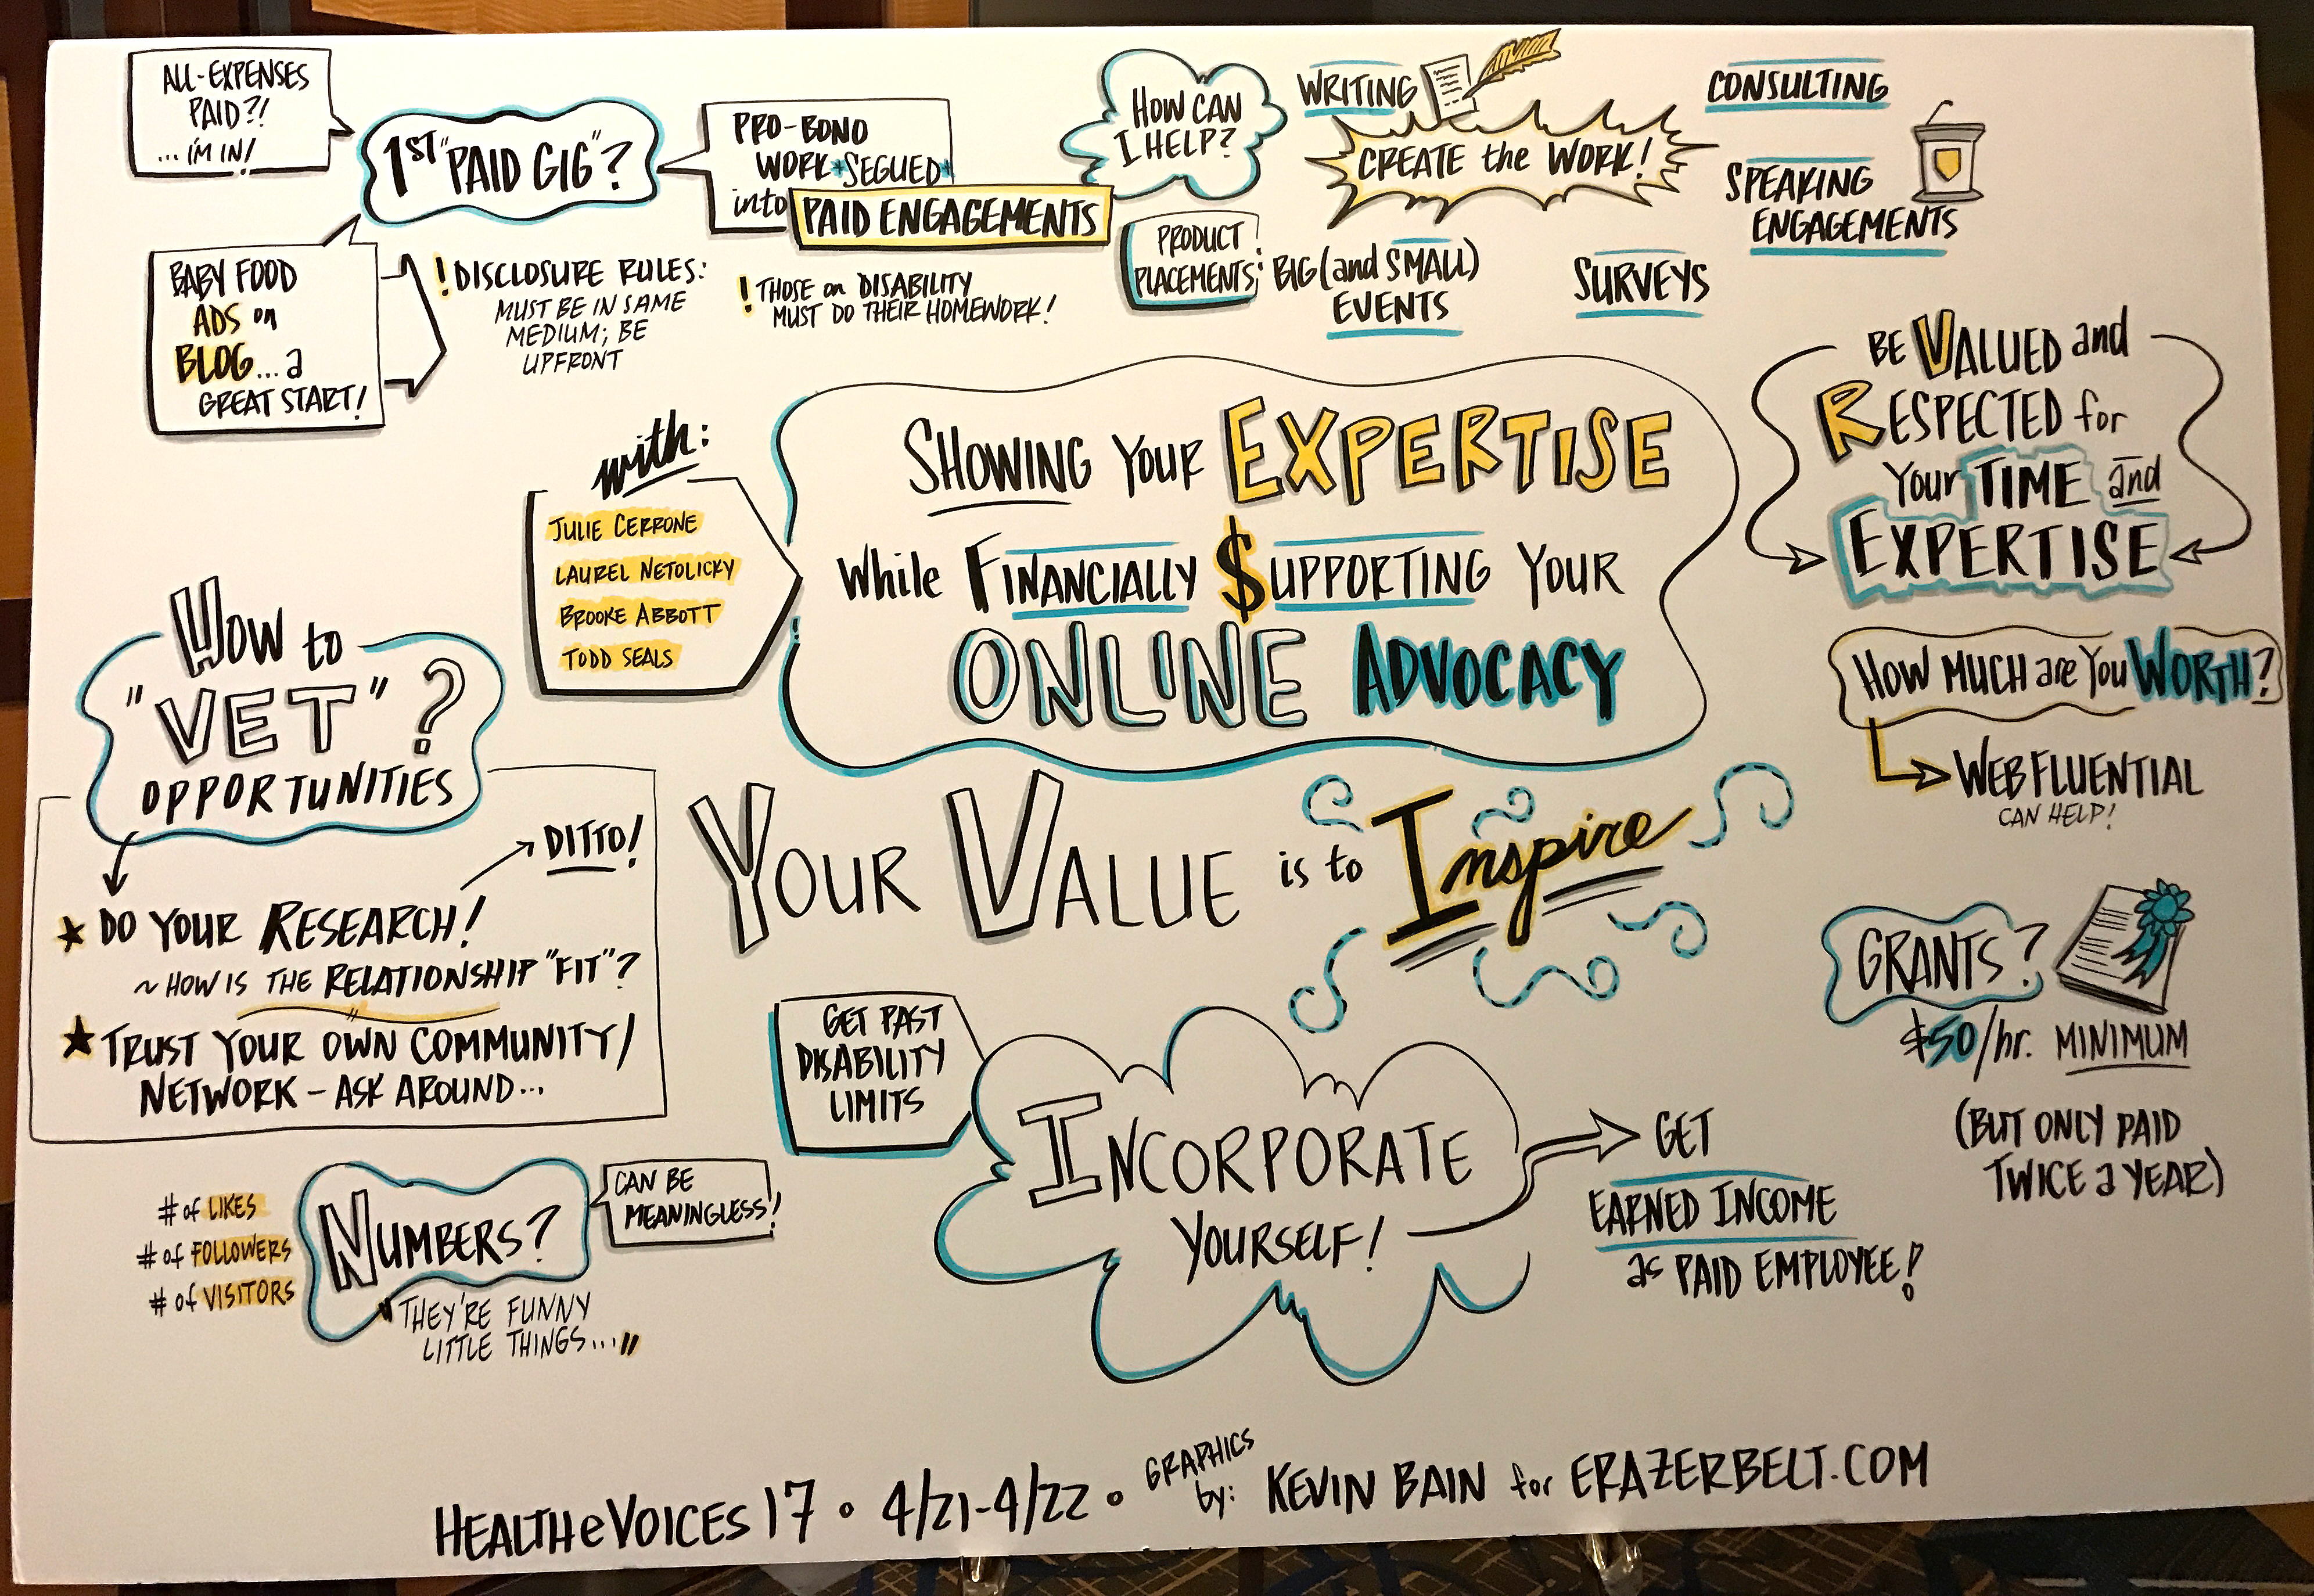 ALL-EXPENSES
PAID?!
...I'M IN!
1ST "PAID GIG"?
PRO-BONO
WORK *SEGUED*
into PAID ENGAGEMENTS
BABY FOOD
ADS on
BLOG... a
GREAT START!
! DISCLOSURE RULES:
MUST BE IN SAME
MEDIUM; BE
UPFRONT
! THOSE on DISABILITY
MUST DO THEIR HOMEWORK!
HOW CAN
I HELP?
WRITING
CREATE the WORK!
CONSULTING
SPEAKING
ENGAGEMENTS
PRODUCT
PLACEMENTS
BIG (and SMALL)
EVENTS
SURVEYS
BE VALUED and
RESPECTED for
Your TIME and
EXPERTISE
with:
JULIE CERRONE
LAUREL NETOLICKY
BROOKE ABBOTT
TODD SEALS
SHOWING YOUR EXPERTISE
While FINANCIALLY $UPPORTING YOUR
ONLINE ADVOCACY
HOW MUCH are YOU WORTH?
WEBFLUENTIAL
CAN HELP!
HOW to
"VET"?
OPPORTUNITIES
DITTO!
DO YOUR RESEARCH!
~ HOW IS THE RELATIONSHIP "FIT"?
TRUST YOUR OWN COMMUNITY/
NETWORK - ASK AROUND...
YOUR VALUE is to Inspire
GRANTS?
$50/hr. MINIMUM
(BUT ONLY PAID
TWICE a YEAR)
GET PAST
DISABILITY
LIMITS
INCORPORATE
YOURSELF!
GET
EARNED INCOME
as PAID EMPLOYEE!
# of LIKES
# of FOLLOWERS
# of VISITORS
NUMBERS?
CAN BE
MEANINGLESS!
"THEY'RE FUNNY
LITTLE THINGS..."
HEALTHeVOICES 17 • 4/21-4/22 • GRAPHICS by: KEVIN BAIN for ERAZERBELT.COM